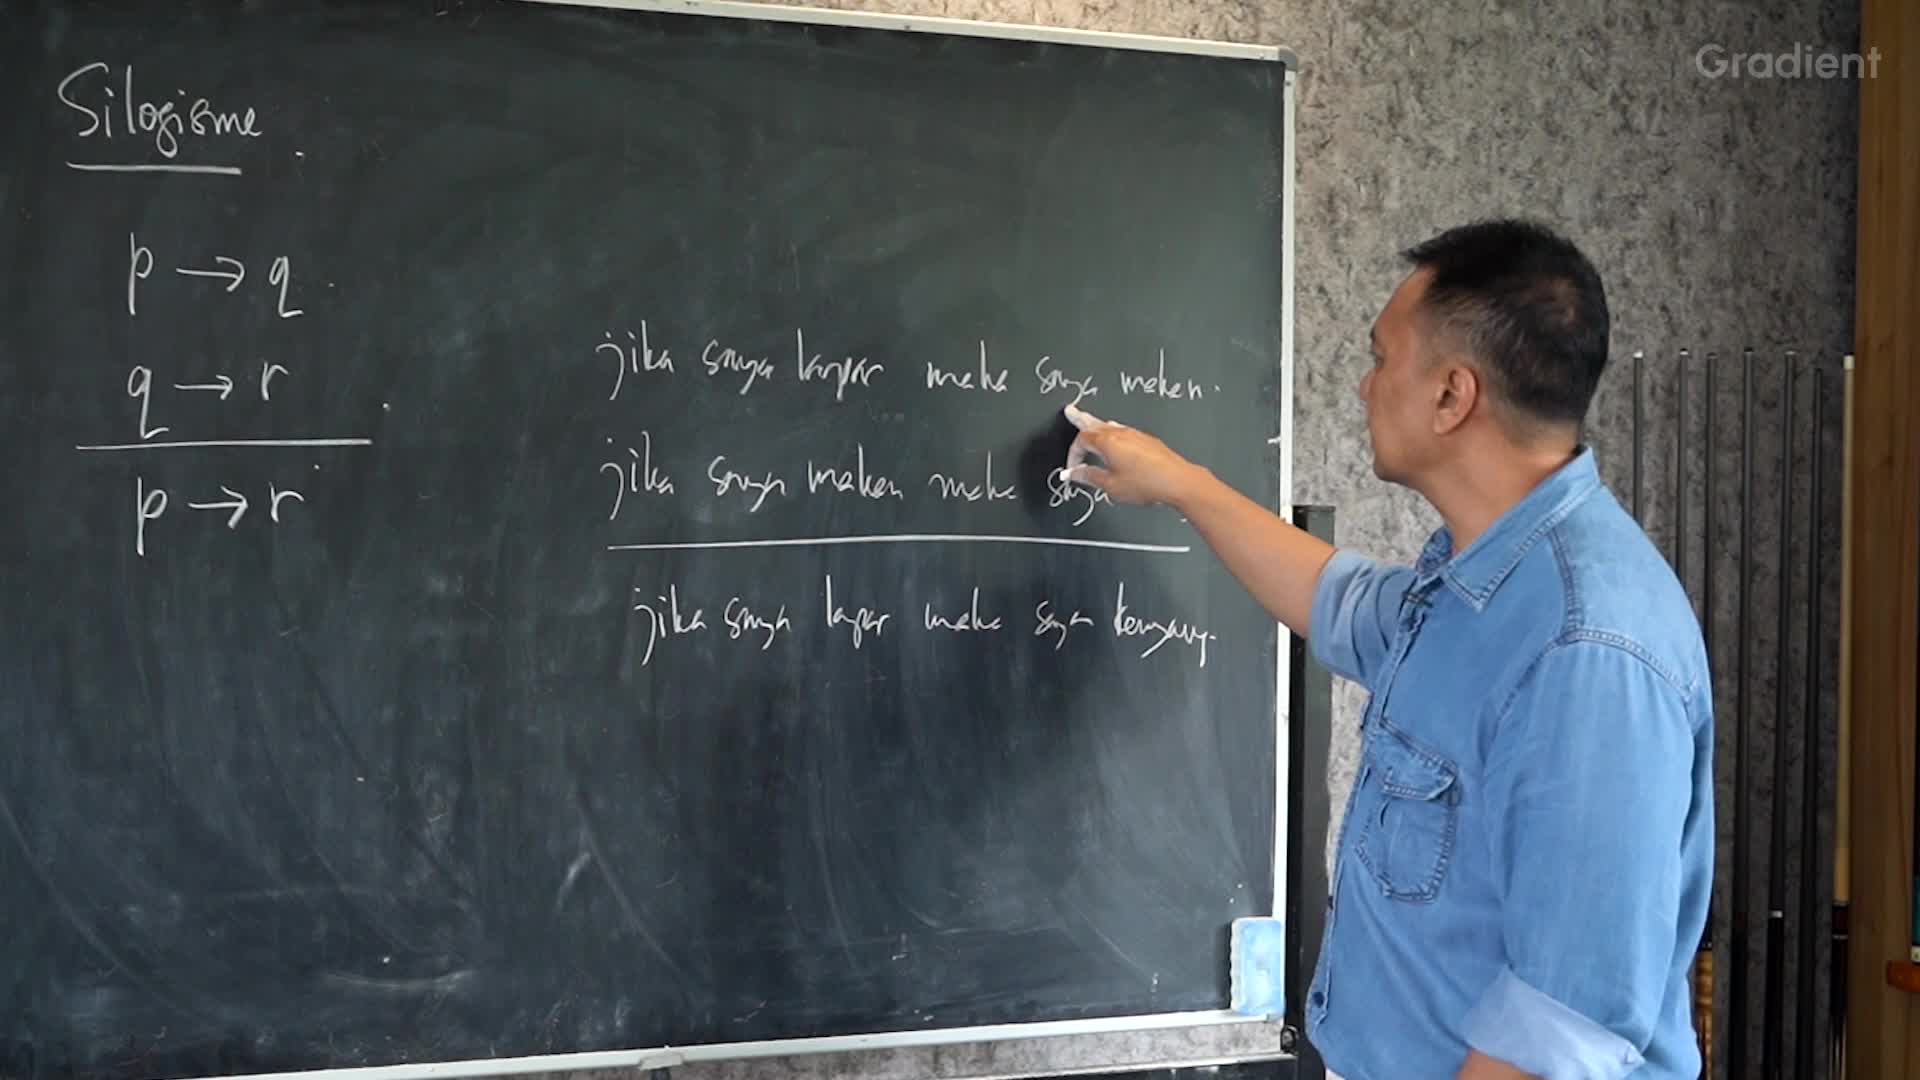 Gradient
Silogisme
p → q
q → r
p → r
jika saya lapar maka saya makan.
jika saya makan maka saya
jika saya lapar maka saya kenyang.